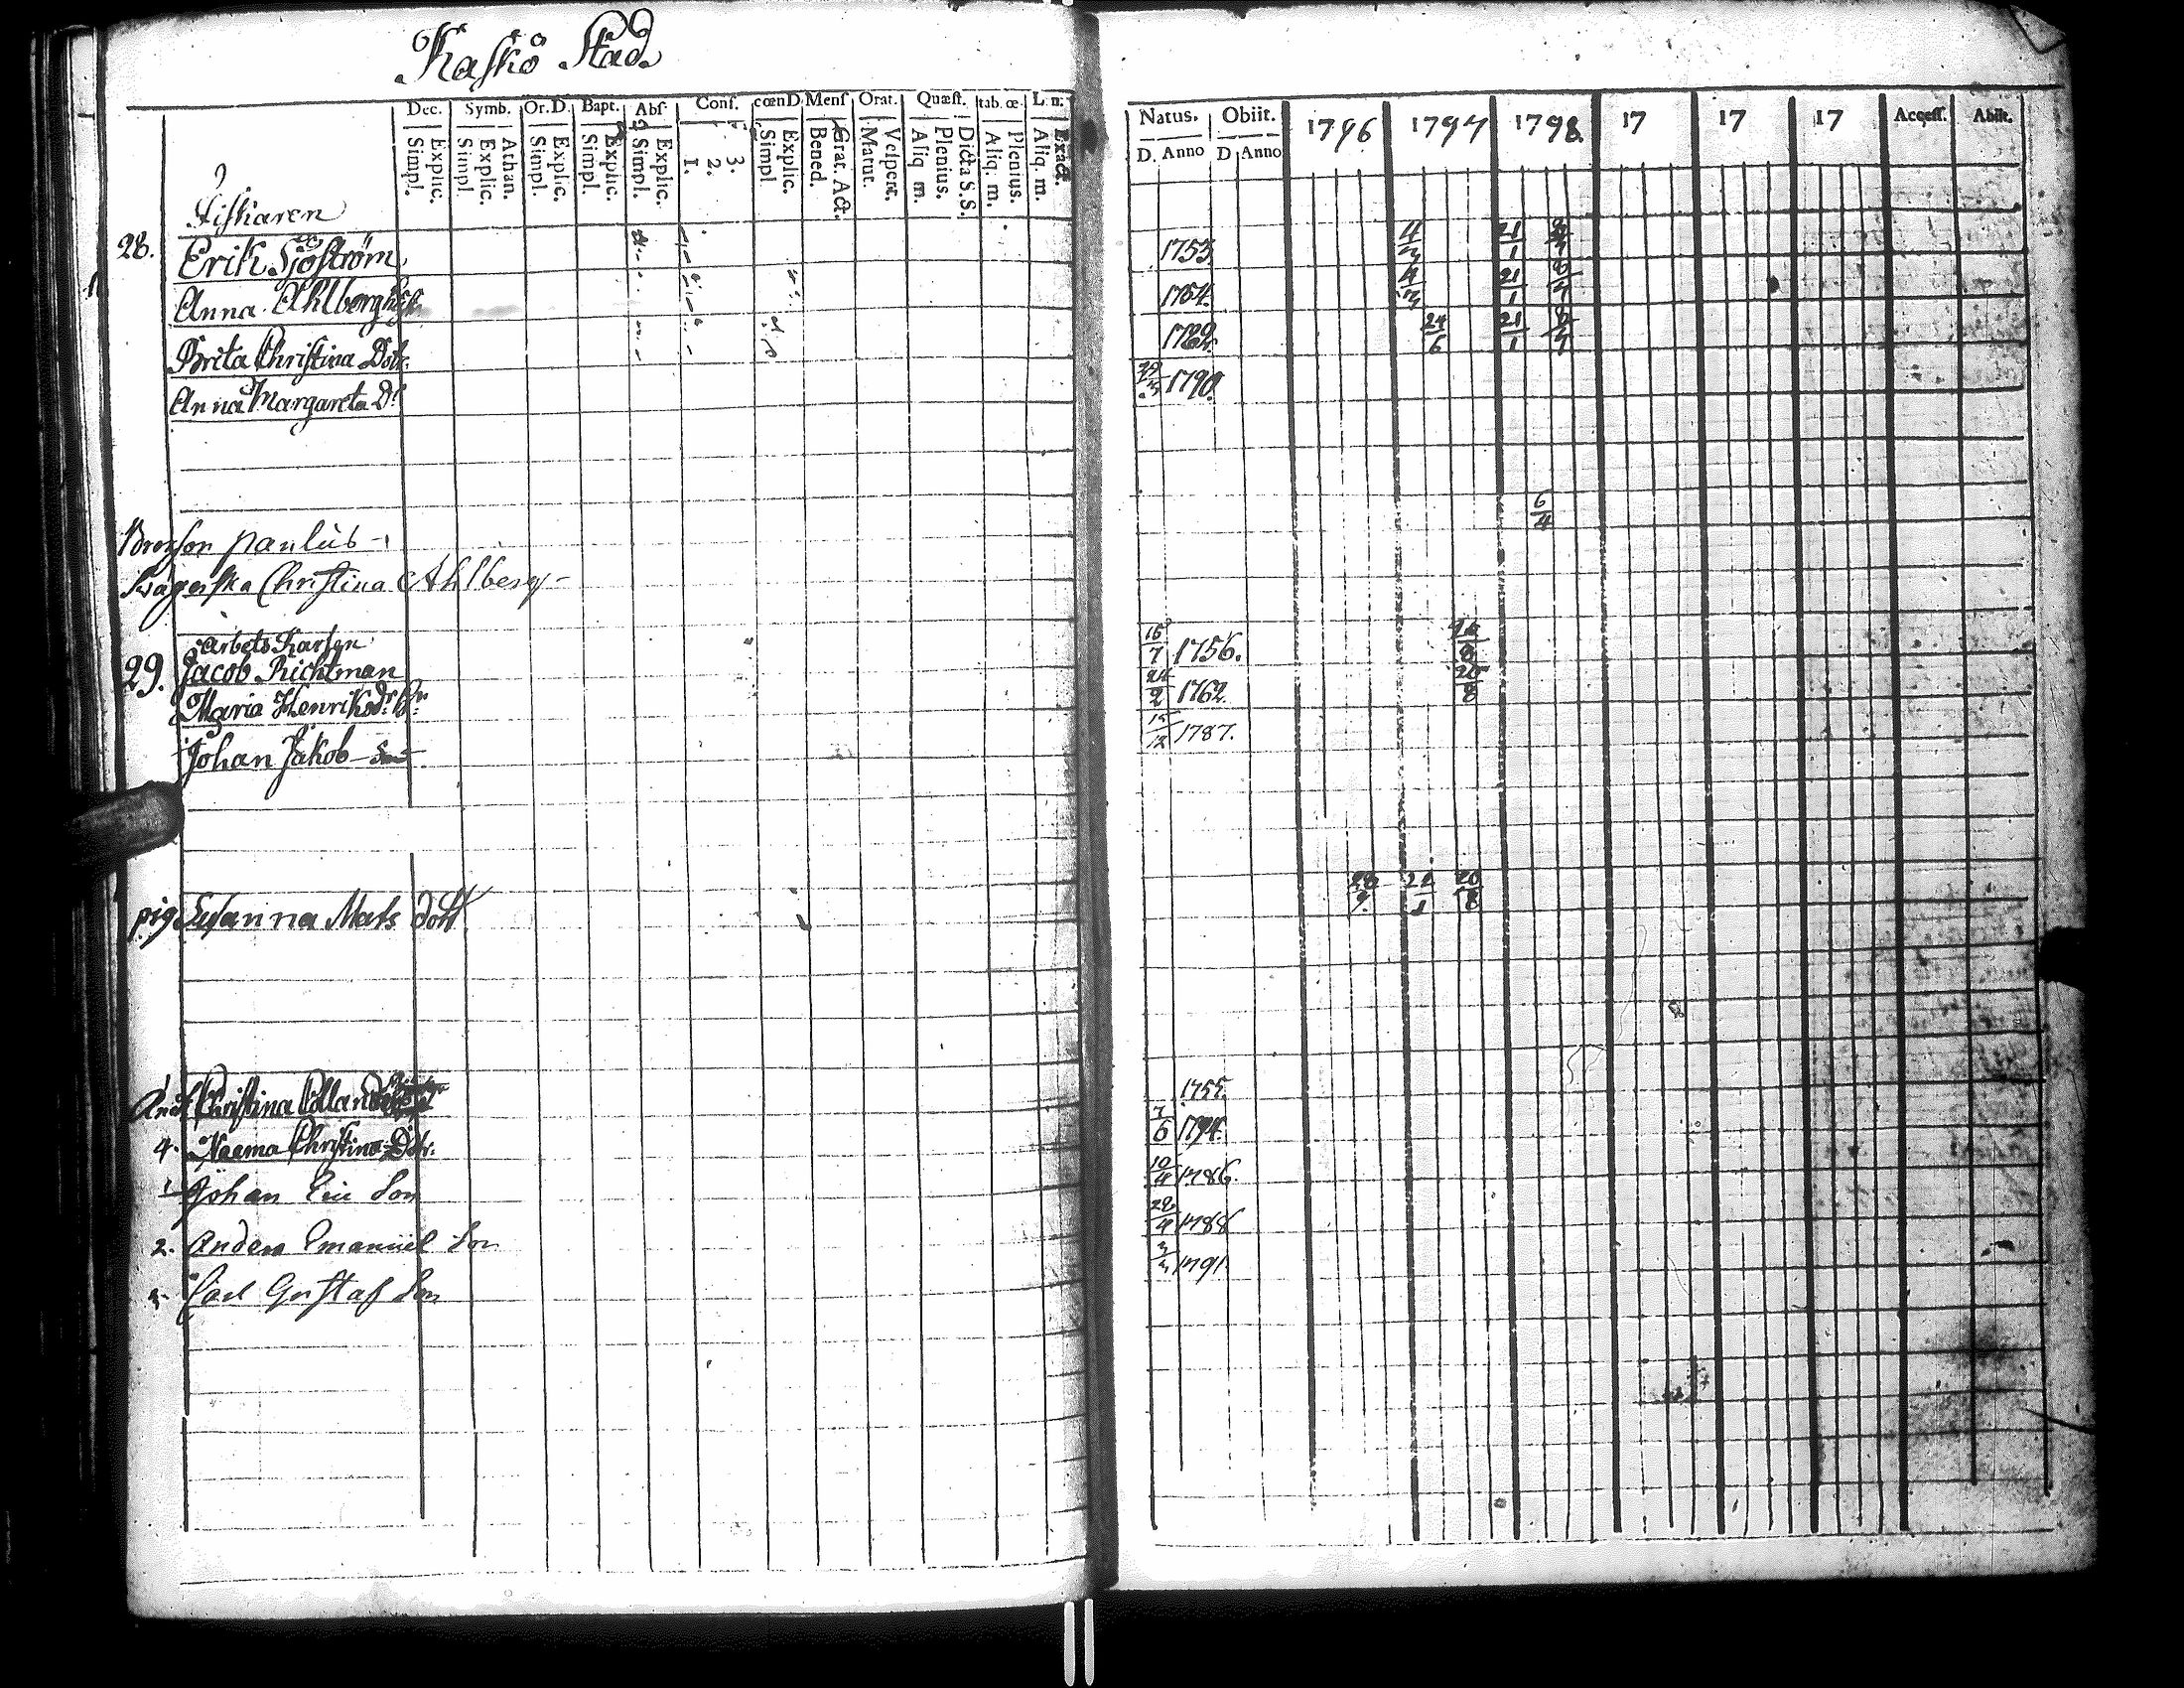 Kaskö Stad
Dec. Symb. Or.D. Bapt. Abs. Conf. cœnD. Mens. Orat. Quæst. tab. œ.
Explic. Simpl. Athan. Explic. Simpl. Explic. Simpl. Explic. Simpl. Explic. Simpl. 3. 2. 1. Explic. Simpl. Grat. Act. Bened. Vespert. Matut. Dicta S.S. Plenius. Aliq. m. Plenius. Aliq. m. Exact. Aliq. m.
Natus. Obiit. 1796 1797 1798 17 17 17 Access. Abiit.
D. Anno D Anno
Fiskaren
28. Erik Sjöström 1753 4/3 21/1 8/7
Anna Ahlberg 1754. 4/3 21/1 8/7
Brita Christina Dotr. 24/6 21/1 8/7
Anna Margareta Dr 1790.
6/4
Brorson paulus
Svägerska Christina Ahlberg
Arbets Karlen
29. Jacob Richtman 16/7 1756.
Maria Henriksdr. 24/2 1762.
Johan Jakob Son 15/12 1787.
pig Susanna Mats dott 28/9 22/1 20/8
Christina 1755.
4. Neema Christina Dotr. 7/6 1794.
1 Johan Eric Son 10/4 1786.
2. Anders Emanuel Son 28/4 1788
3. Carl Gustaf Son 3/3 1791